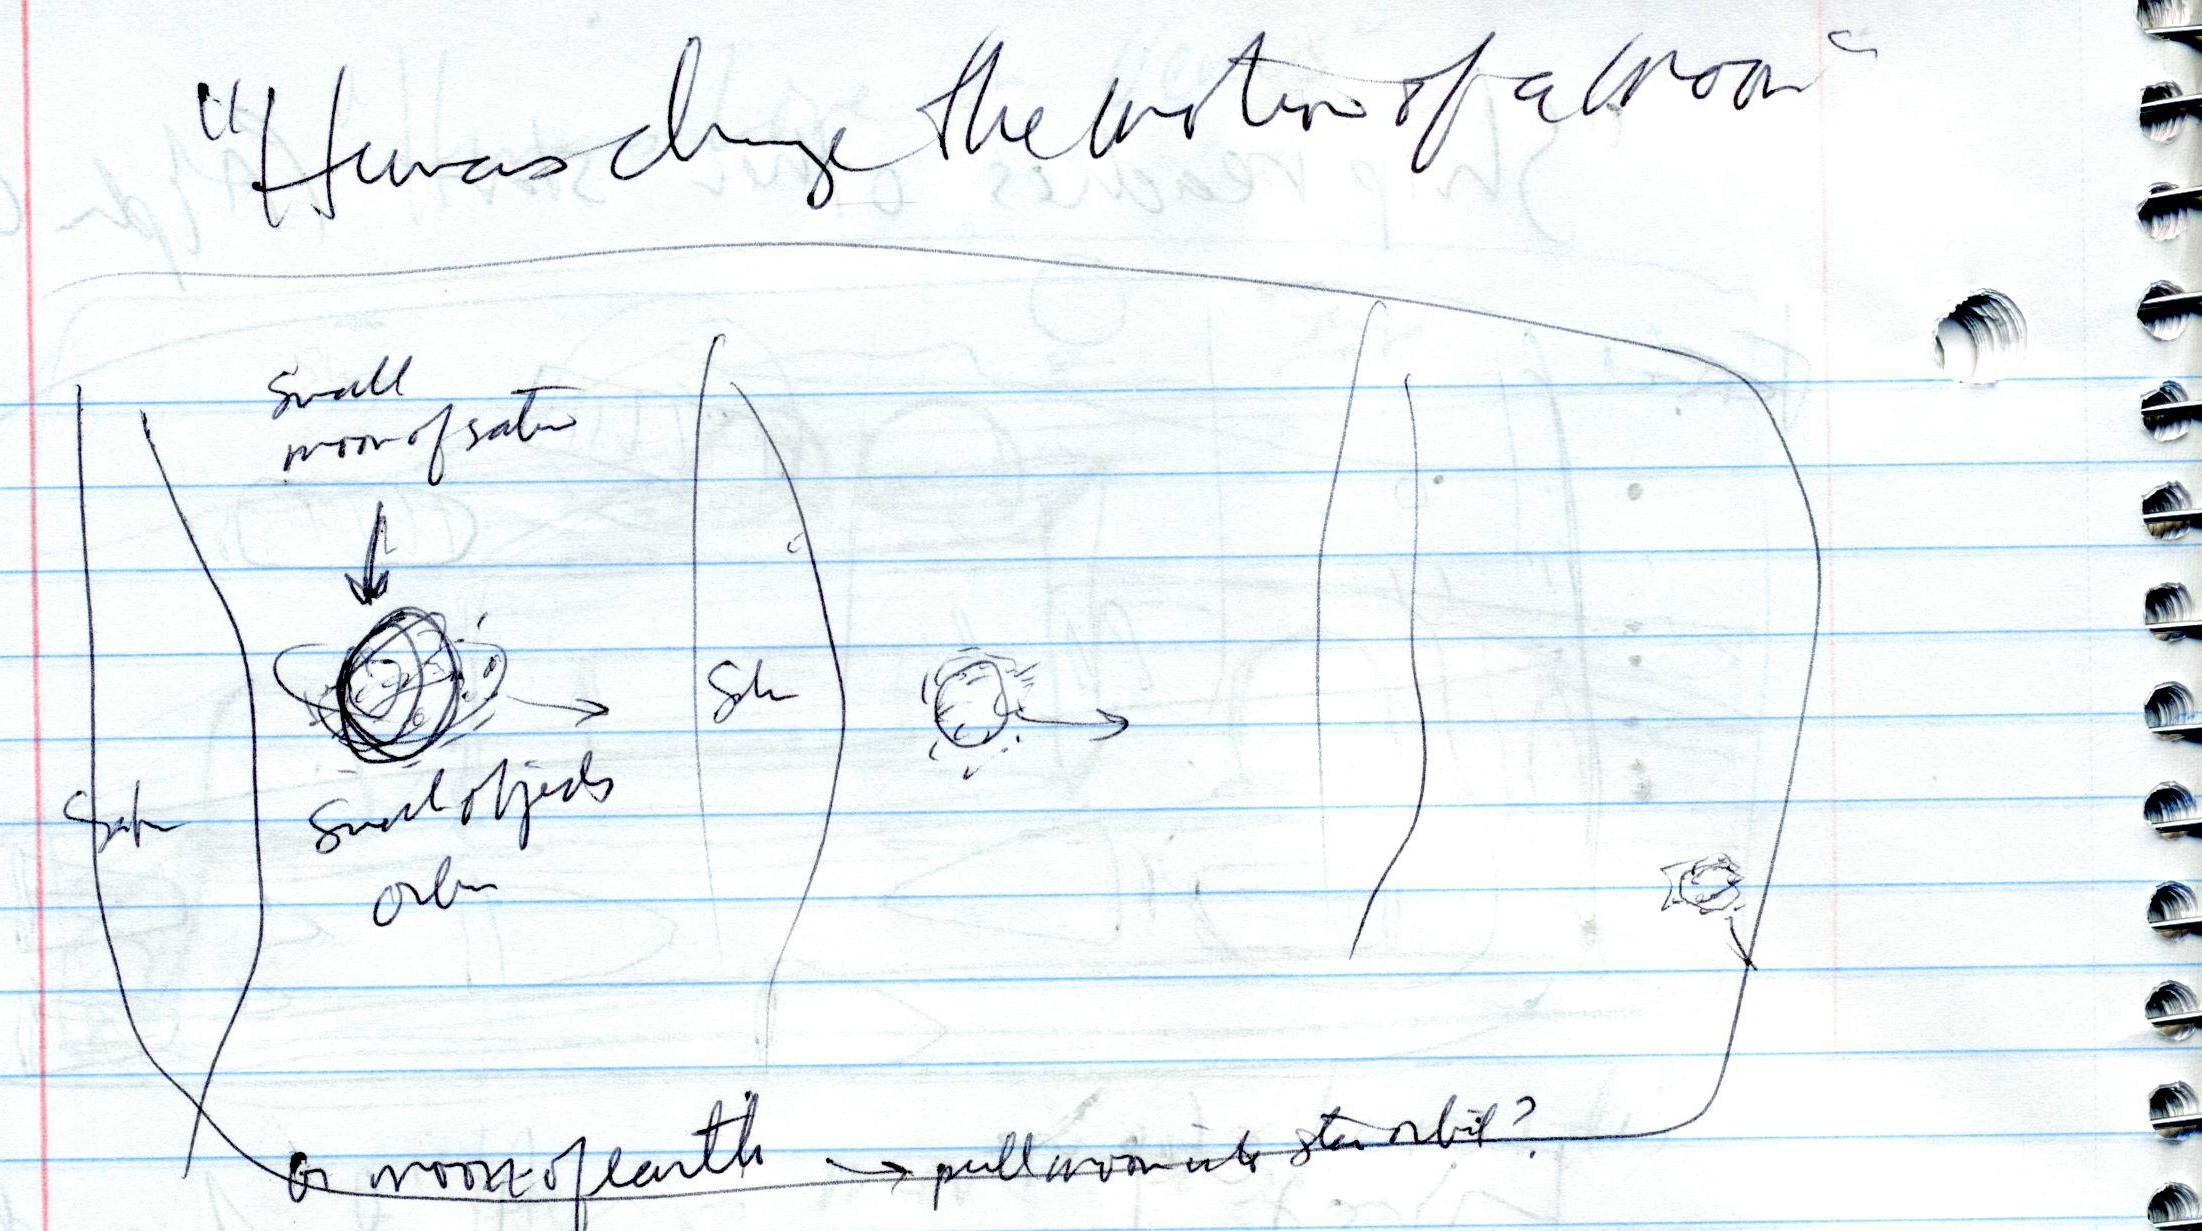 "Humans change the motion of a moon"
Small
moon of saturn
Small objects
orbit
Saturn
or moon of earth → pull moon into star orbit?